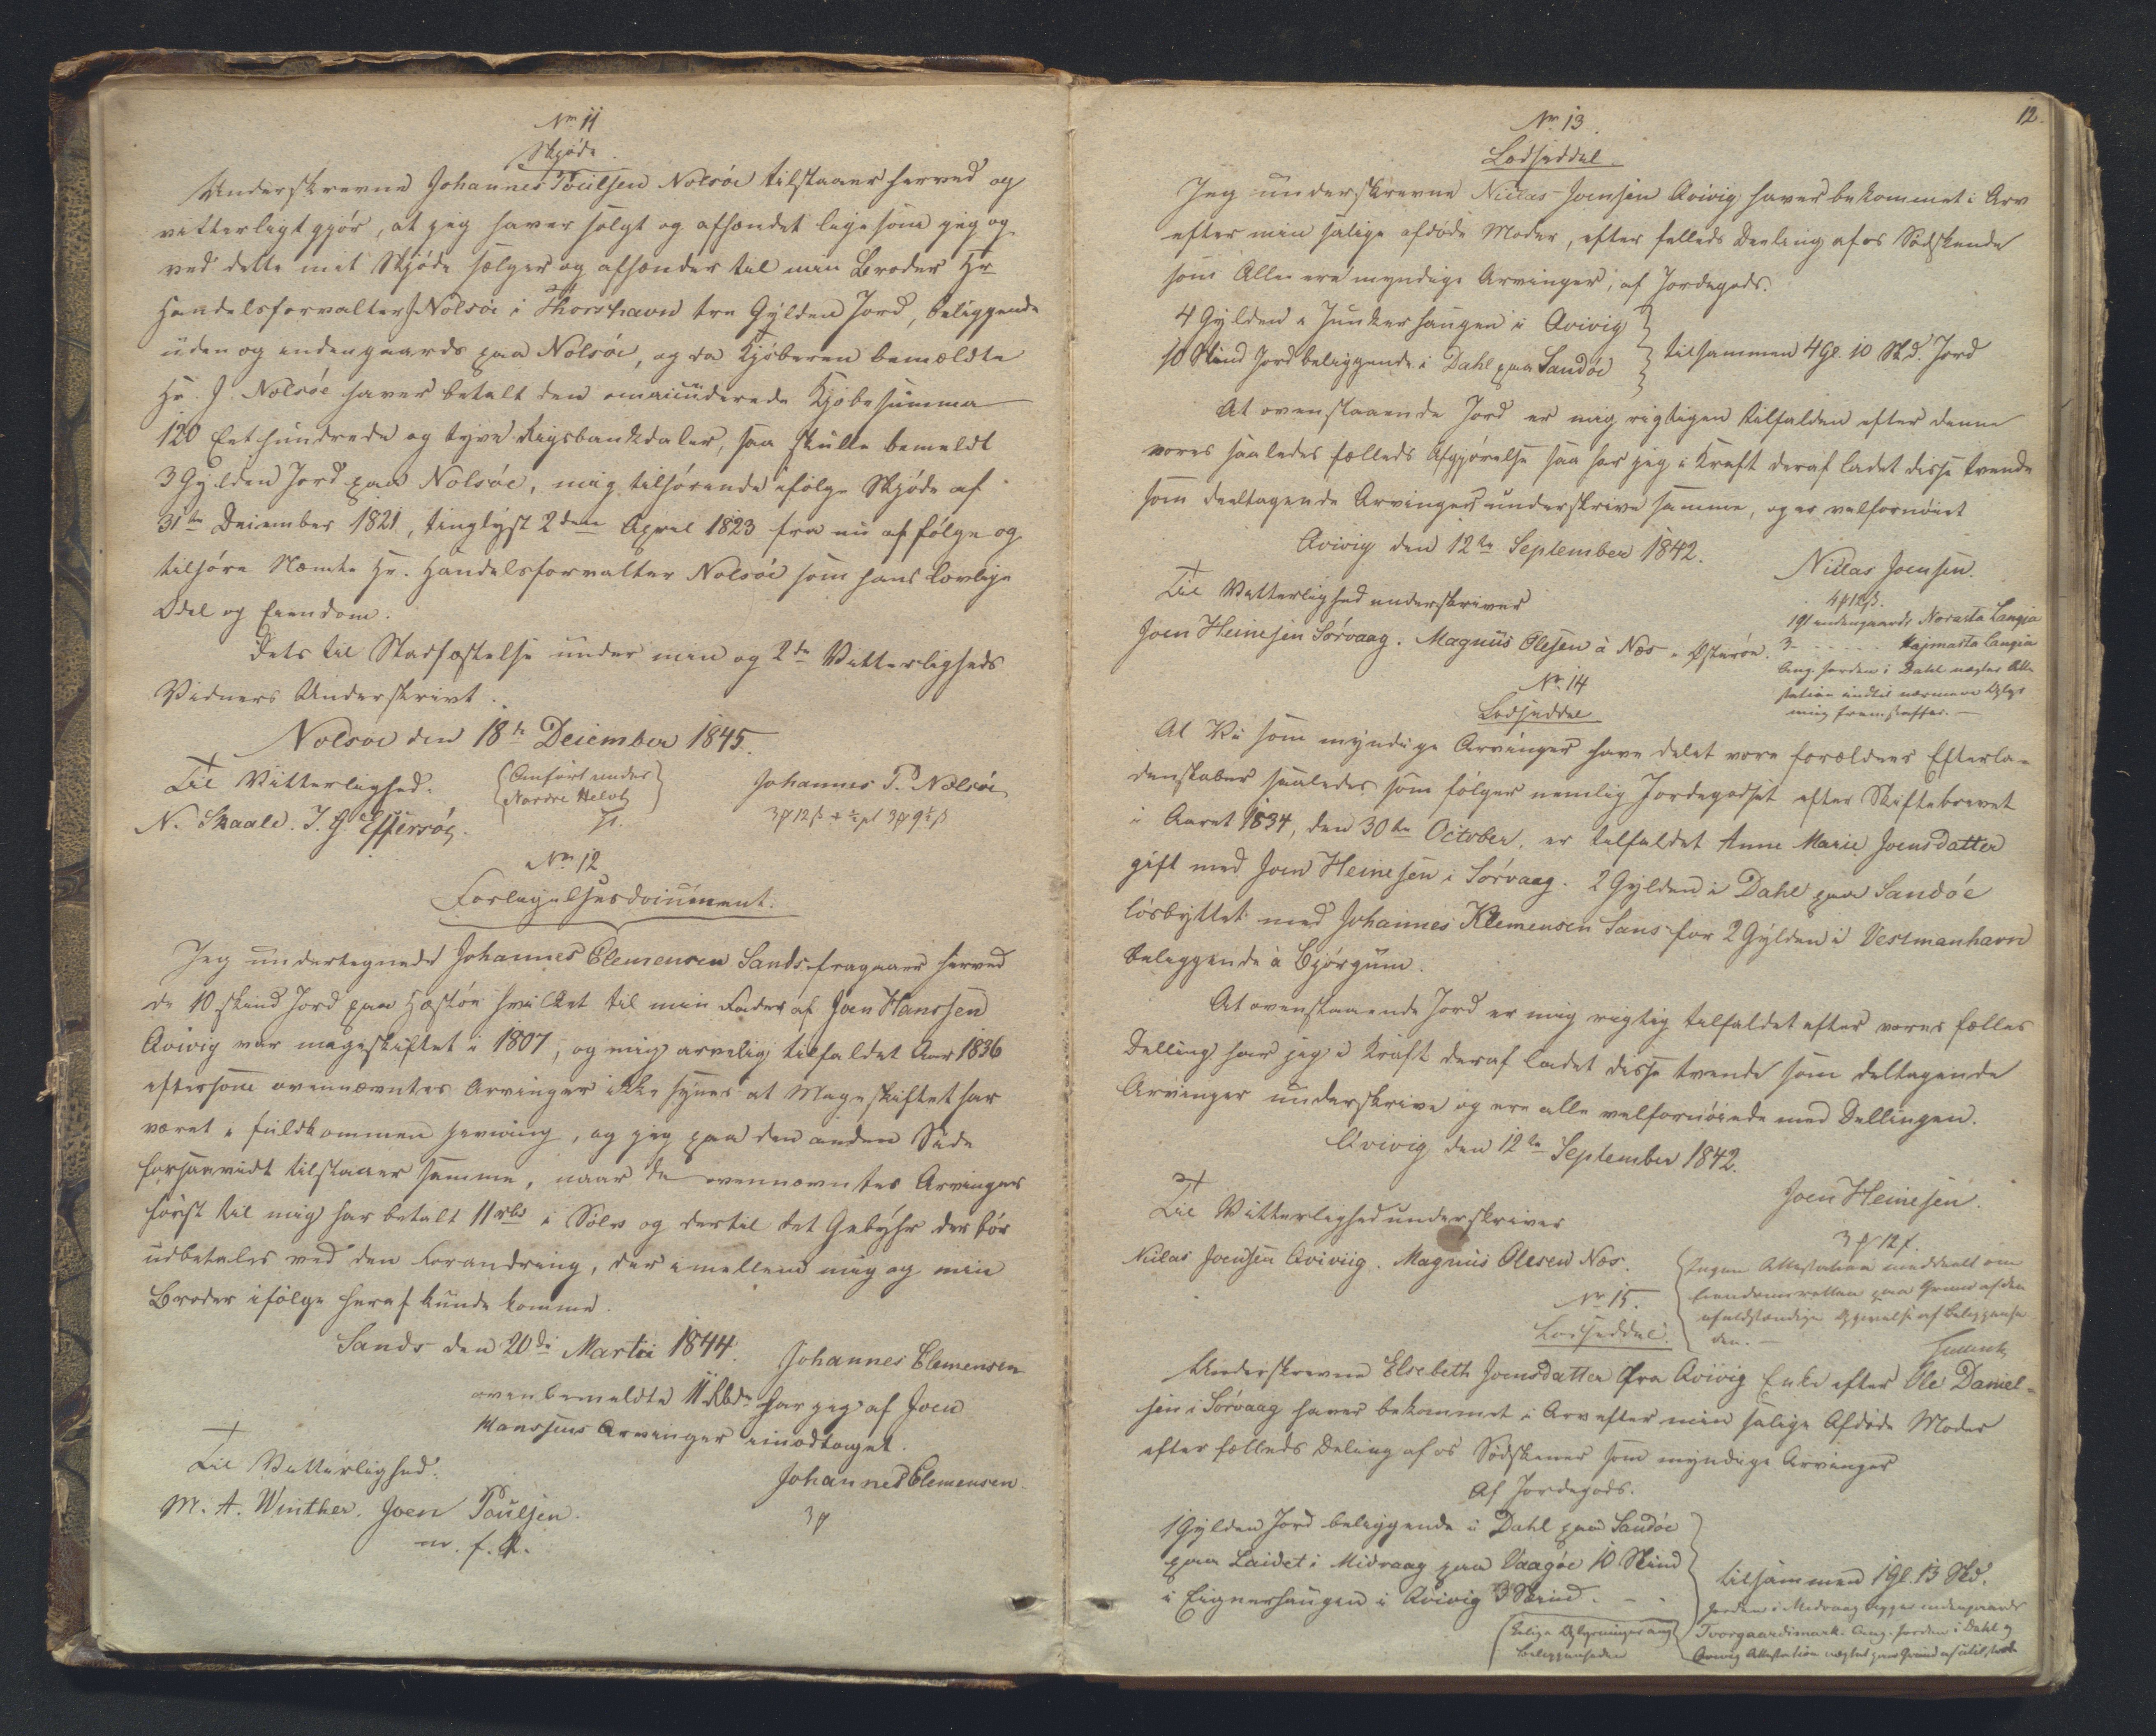 Nr 11
Skjøde.
Underskrevne Johannes Poulsen Nolsöe tilstaaer herved og
vitterligt gjør, at jeg haver solgt og afhændet ligesom jeg og
ved dette mit Skjøde sælger og afhænder til min Broder Hr
Handelsforvalter J. Nolsöe i Thorshavn tre Gylden Jord, beliggende
uden og indengaards paa Nolsöe, og da Kjøberen bemældte
Hr. J. Nolsöe haver betalt den omaccorderede Kjøbesumma
120 Eethundrede og tyve Rigsbankdaler, saa skulle bemeldt
3 Gylden Jord paa Nolsöe, mig tilhørende ifølge Skjøde af
31te December 1821, tinglyst 2den April 1823 fra nu af følge og
tilhøre Nævnte Hr. Handelsforvalter Nolsöe som hans lovlige
Odel og Eiendom.
Dets til Stadfæstelse under min og 2de Vitterligheds
Vidners Underskrivt.
Nolsoe den 18de December 1845.
Til Vitterlighed.
(Anført under)
Nordre Helvt
Johannes P. Nolsöe
N. Skaale. J. G. Effersöe.
3 12 ß + ½ 3 9½ ß
Nr 12
Forligelsesdocument.
Jeg undertegnede Johannes Clemensen Sands fragaaer herved
de 10 skind Jord paa Hæstöe hvilket til min Fader af Joen Hanssen
Qvivig var mageskiftet i 1807, og mig arvelig tilfaldet Aar 1836
eftersom ovennævntes Arvinger ikke synes at Mageskiftet har
været i fuldkommen Jevning, og jeg paa den anden Side
forsaavidt tilstaaer samme, naar de ovennævntes Arvinger
først til mig har betalt 11 rbd i Sølv og dertil det Gebyhr der bør
udbetales ved den Forandring, der imellem mig og min
Broder ifølge heraf kunde komme.
Sands den 20de Martii 1844.
Johannes Clemensen
ovenbemeldte 11 Rbd. har jeg af Joen
Hanssens Arvinger imodtaget.
Til Vitterlighed:
Johannes Clemensen
M. A. Winther. Joen Poulsen.
m. f. P.
3
12.
Nr 13.
Lodseddel.
Jeg underskrevne Niclas Joensen Qvivig haver bekommet i Arv
efter min salige afdøde Moder, efter felleds Deeling af os Sødskende
som Alle ere myndige Arvinger, af Jordegods.
4 Gylden i Junkerhaugen i Qvivig
10 Skind Jord beliggende i Dahl paa Sandöe
tilsammen 4 Gl. 10 Skd. Jord
At ovenstaaende Jord er mig rigtigen tilfalden efter denne
vores saaledes fælleds Afgjørelse saa har jeg i Kraft deraf ladet disse tvende
som deeltagende Arvinger underskrive samme, og er velfornøiet
Qvivig den 12te September 1842.
Niclas Joensen.
Til Vitterlighed underskriver
4 12 ß.
1 Gl indengaards Norasta Langja
Joen Heinesen Sörvaag. Magnus Olesen á Næs. Østeröe.
3 - - - - - Hajmasta Langia
Ang. Jorden i Dahl nægtes Atte-
station indtil nærmere Oplys-
ning fremskaffes.
Nr 14
Lodseddel
At Vi som myndige Arvinger have delet vore forældres Efterla-
denskaber saaledes som følger nemlig Jordegodset efter Skiftebrevet
i Aaret 1834, den 30te October, er tilfaldet Anne Marie Joensdatter
gift med Joen Heinesen i Sörvaag. 2 Gylden i Dahl paa Sandöe
løsbyttet med Johannes Klemensen Sans for 2 Gylden i Vestmanhavn
beliggende á Bjørgum.
At ovenstaaende Jord er mig rigtig tilfaldet efter vores fælles
Delling har jeg i Kraft deraf ladet disse tvende som deltagende
Arvinger underskrive og ere alle velfornøiede med Dellingen.
Qvivig den 12te September 1842.
Joen Heinesen.
Til Vitterlighed underskriver
3 12 ß.
Niclas Joensen Qviviig. Magnus Olesen Næs.
Ingen Attestation meddeelt om
Eiendomsretten paa Grund af den
ufuldstændige Opgivelse af Beliggenhe-
den.
Nr 15.
Lodseddel.
Underskrevne Elsebeth Joensdatter fra Qvivig Enke efter Ole Daniel-
sen i Sörvaag haver bekommet i Arv efter min salige Afdøde Moder
efter fælleds Deling af os Sødskener som myndige Arvinger
Af Jordegods.
1 Gylden Jord beliggende i Dahl paa Sandöe
paa Laidet i Midvaag paa Vaagöe 10 Skind
i Eignerhaugen i Qvivig 3 Skind.
tilsammen 1 Gl. 13 Skd.
Jorden i Midvaag ligger indengaards
Tvorgaardimark. Ang. Jorden i Dahl og
Qvivig Attestation nægtet paa Grund af
Oplysninger ang.
Beliggenheden